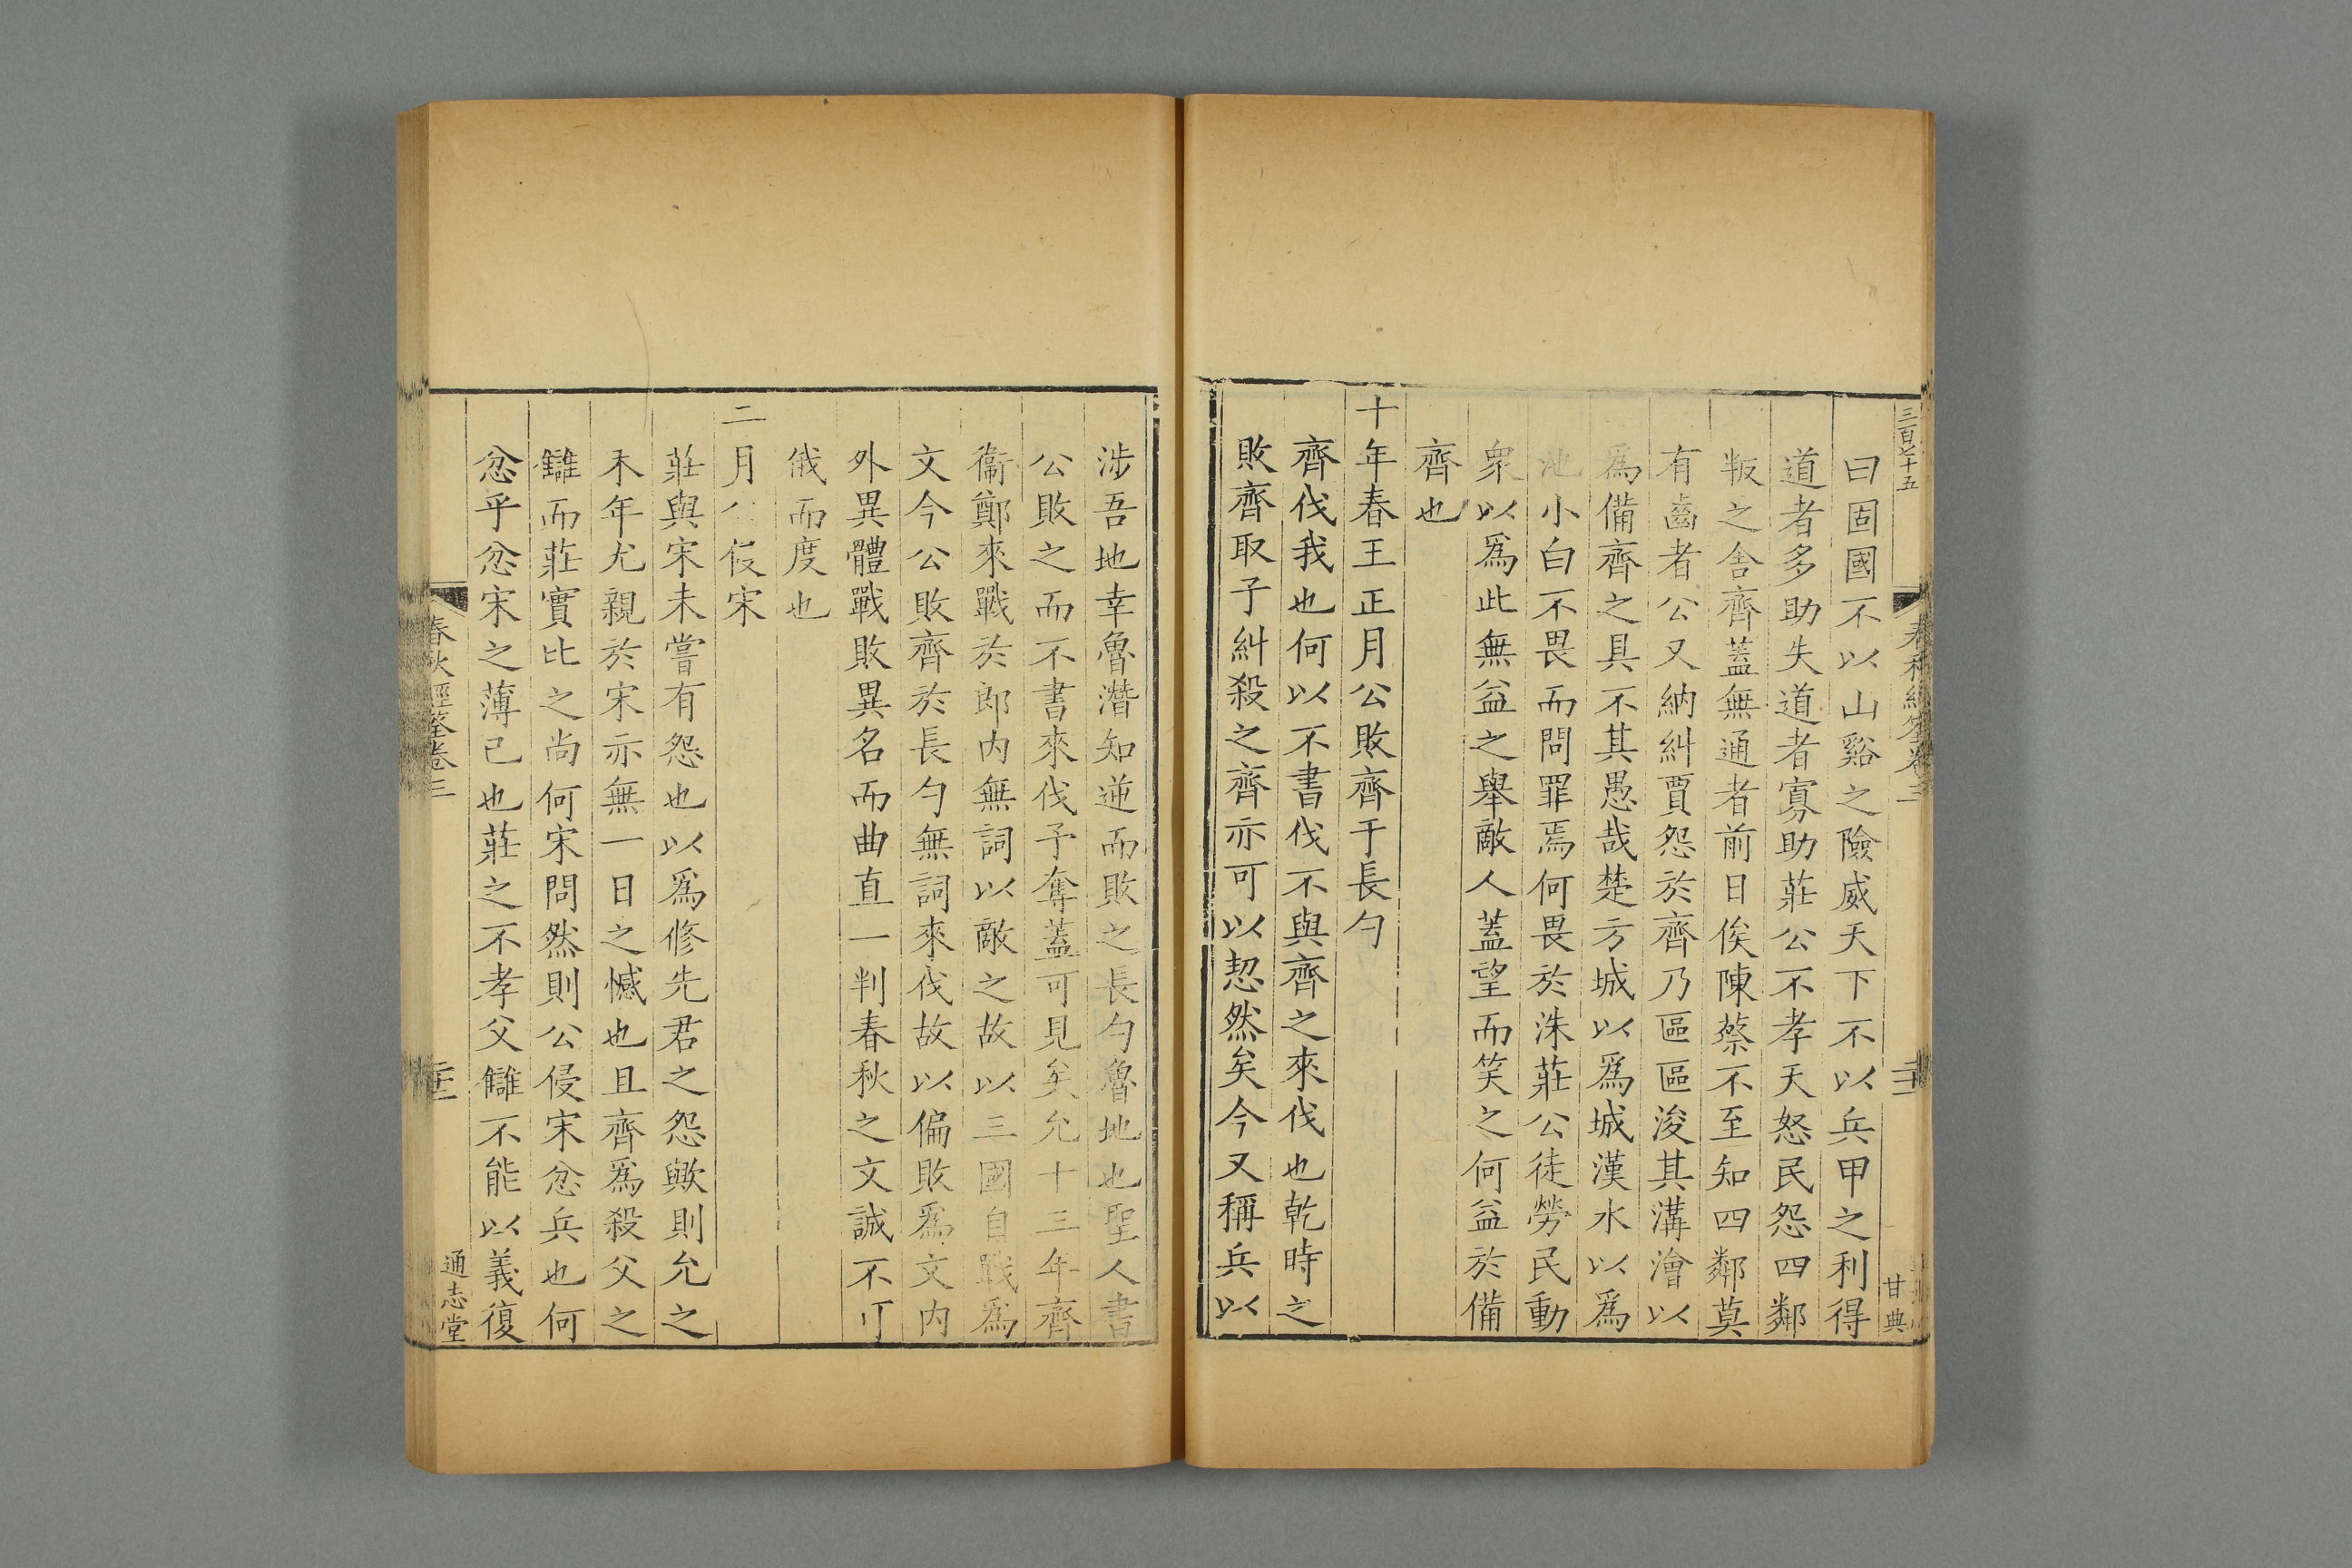 三百七十五
春秋經筌卷三
甘典
曰固國不以山谿之險威天下不以兵甲之利得
道者多助失道者寡助莊公不孝天怒民怨四鄰
叛之舍齊蓋無通者前日俟陳蔡不至知四鄰莫
有齒者公又納糾賈怨於齊乃區區浚其溝澮以
爲備齊之具不其愚哉楚方城以爲城漢水以爲
池小白不畏而問罪焉何畏於洙莊公徒勞民動
衆以爲此無益之舉敵人蓋望而笑之何益於備
齊也
十年春王正月公敗齊于長勺
齊伐我也何以不書伐不與齊之來伐也乾時之
敗齊取子糾殺之齊亦可以恝然矣今又稱兵以
涉吾地幸魯潛知逆而敗之長勺魯地也聖人書
公敗之而不書來伐予奪蓋可見矣允十三年齊
衞鄭來戰於郎内無詞以敵之故以三國自戰爲
文今公敗齊於長勺無詞來伐故以偏敗爲文内
外異體戰敗異名而曲直一判春秋之文誠不可
俄而度也
二月公侵宋
莊與宋未嘗有怨也以爲修先君之怨歟則允之
末年尤親於宋亦無一日之憾也且齊爲殺父之
讎而莊實比之尚何宋問然則公侵宋忿兵也何
忿乎忿宋之薄己也莊之不孝父讎不能以義復
春秋經筌卷三
通志堂